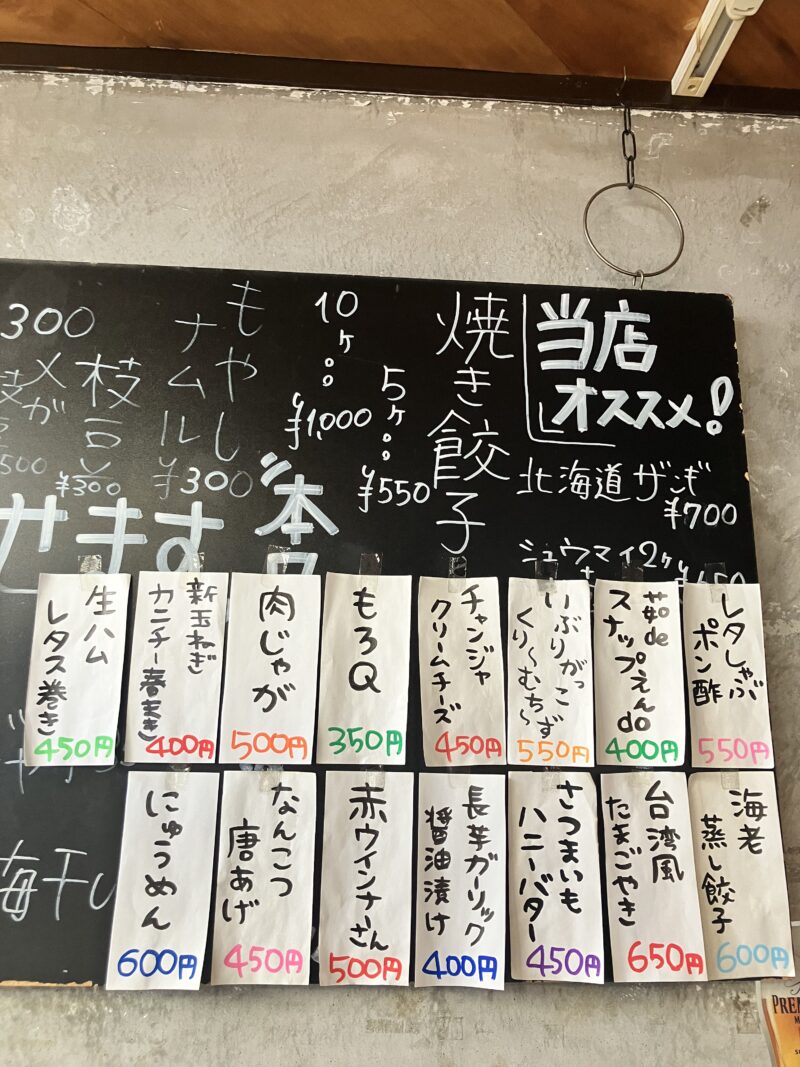 当店
オススメ!
北海道ザンギ
¥700
シュウマイ2ヶ
焼き餃子
5ヶ。。
¥550
10ヶ。。
¥1,000
もやし
ナムル
¥300
枝豆
¥300
メガ
500
300
せます
本日
梅干し
レタしゃぶ
ポン酢
550円
茹de
スナップえんdo
400円
いぶりがっこ
くり〜むち〜ず
550円
チャンジャ
クリームチーズ
450円
もろQ
350円
肉じゃが
500円
新玉ねぎ
カニチー春まき
400円
生ハム
レタス巻き
450円
海老
蒸し餃子
600円
台湾風
たまごやき
650円
さつまいも
ハニーバター
450円
長芋ガーリック
醤油漬け
400円
赤ウインナーさん
500円
なんこつ
唐あげ
450円
にゅうめん
600円